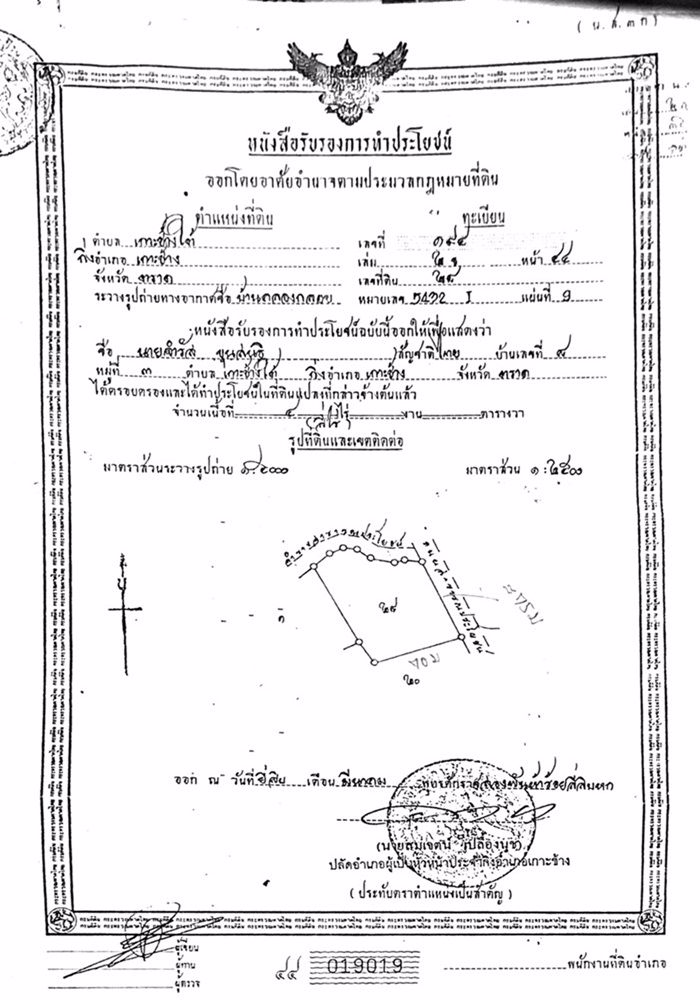 (น.ส.๓ ก)
หนังสือรับรองการทำประโยชน์
ออกโดยอาศัยอำนาจตามประมวลกฎหมายที่ดิน
ตำแหน่งที่ดิน ทะเบียน
ตำบล เกาะช้างใต้ เลขที่ ๑๙๔
กิ่งอำเภอ เกาะช้าง เล่ม หน้า ๔๔
จังหวัด ตราด เลขที่ดิน ๒๘
ระวางรูปถ่ายทางอากาศชื่อ บ้านคลองกลอย หมายเลข 5432 I แผ่นที่ 9
หนังสือรับรองการทำประโยชน์ฉบับนี้ออกให้เพื่อแสดงว่า
ชื่อ นาย สัญชาติ ไทย บ้านเลขที่ ๔
หมู่ที่ ๓ ตำบล เกาะช้างใต้ กิ่งอำเภอ เกาะช้าง จังหวัด ตราด
ได้ครอบครองและได้ทำประโยชน์ในที่ดินแปลงที่กล่าวข้างต้นแล้ว
จำนวนเนื้อที่ ๔ ไร่ งาน ตารางวา
(สี่ไร่)
รูปที่ดินและเขตติดต่อ
มาตราส่วนระวางรูปถ่าย ๑:๕๐๐๐ มาตราส่วน ๑:๒๕๐๐
ลำรางสาธารณประโยชน์
ถนนสาธารณประโยชน์
น
๒๘
๑
ทะเล
๒๐
ออก ณ วันที่ ยี่สิบ เดือน มีนาคม พุทธศักราช สองพันห้าร้อยสี่สิบหก
ปลัดอำเภอผู้เป็นหัวหน้าประจำกิ่งอำเภอเกาะช้าง
(ประทับตราตำแหน่งเป็นสำคัญ)
ผู้เขียน
ผู้ทาน
ผู้ตรวจ
๔๔ 019019 พนักงานที่ดินอำเภอ